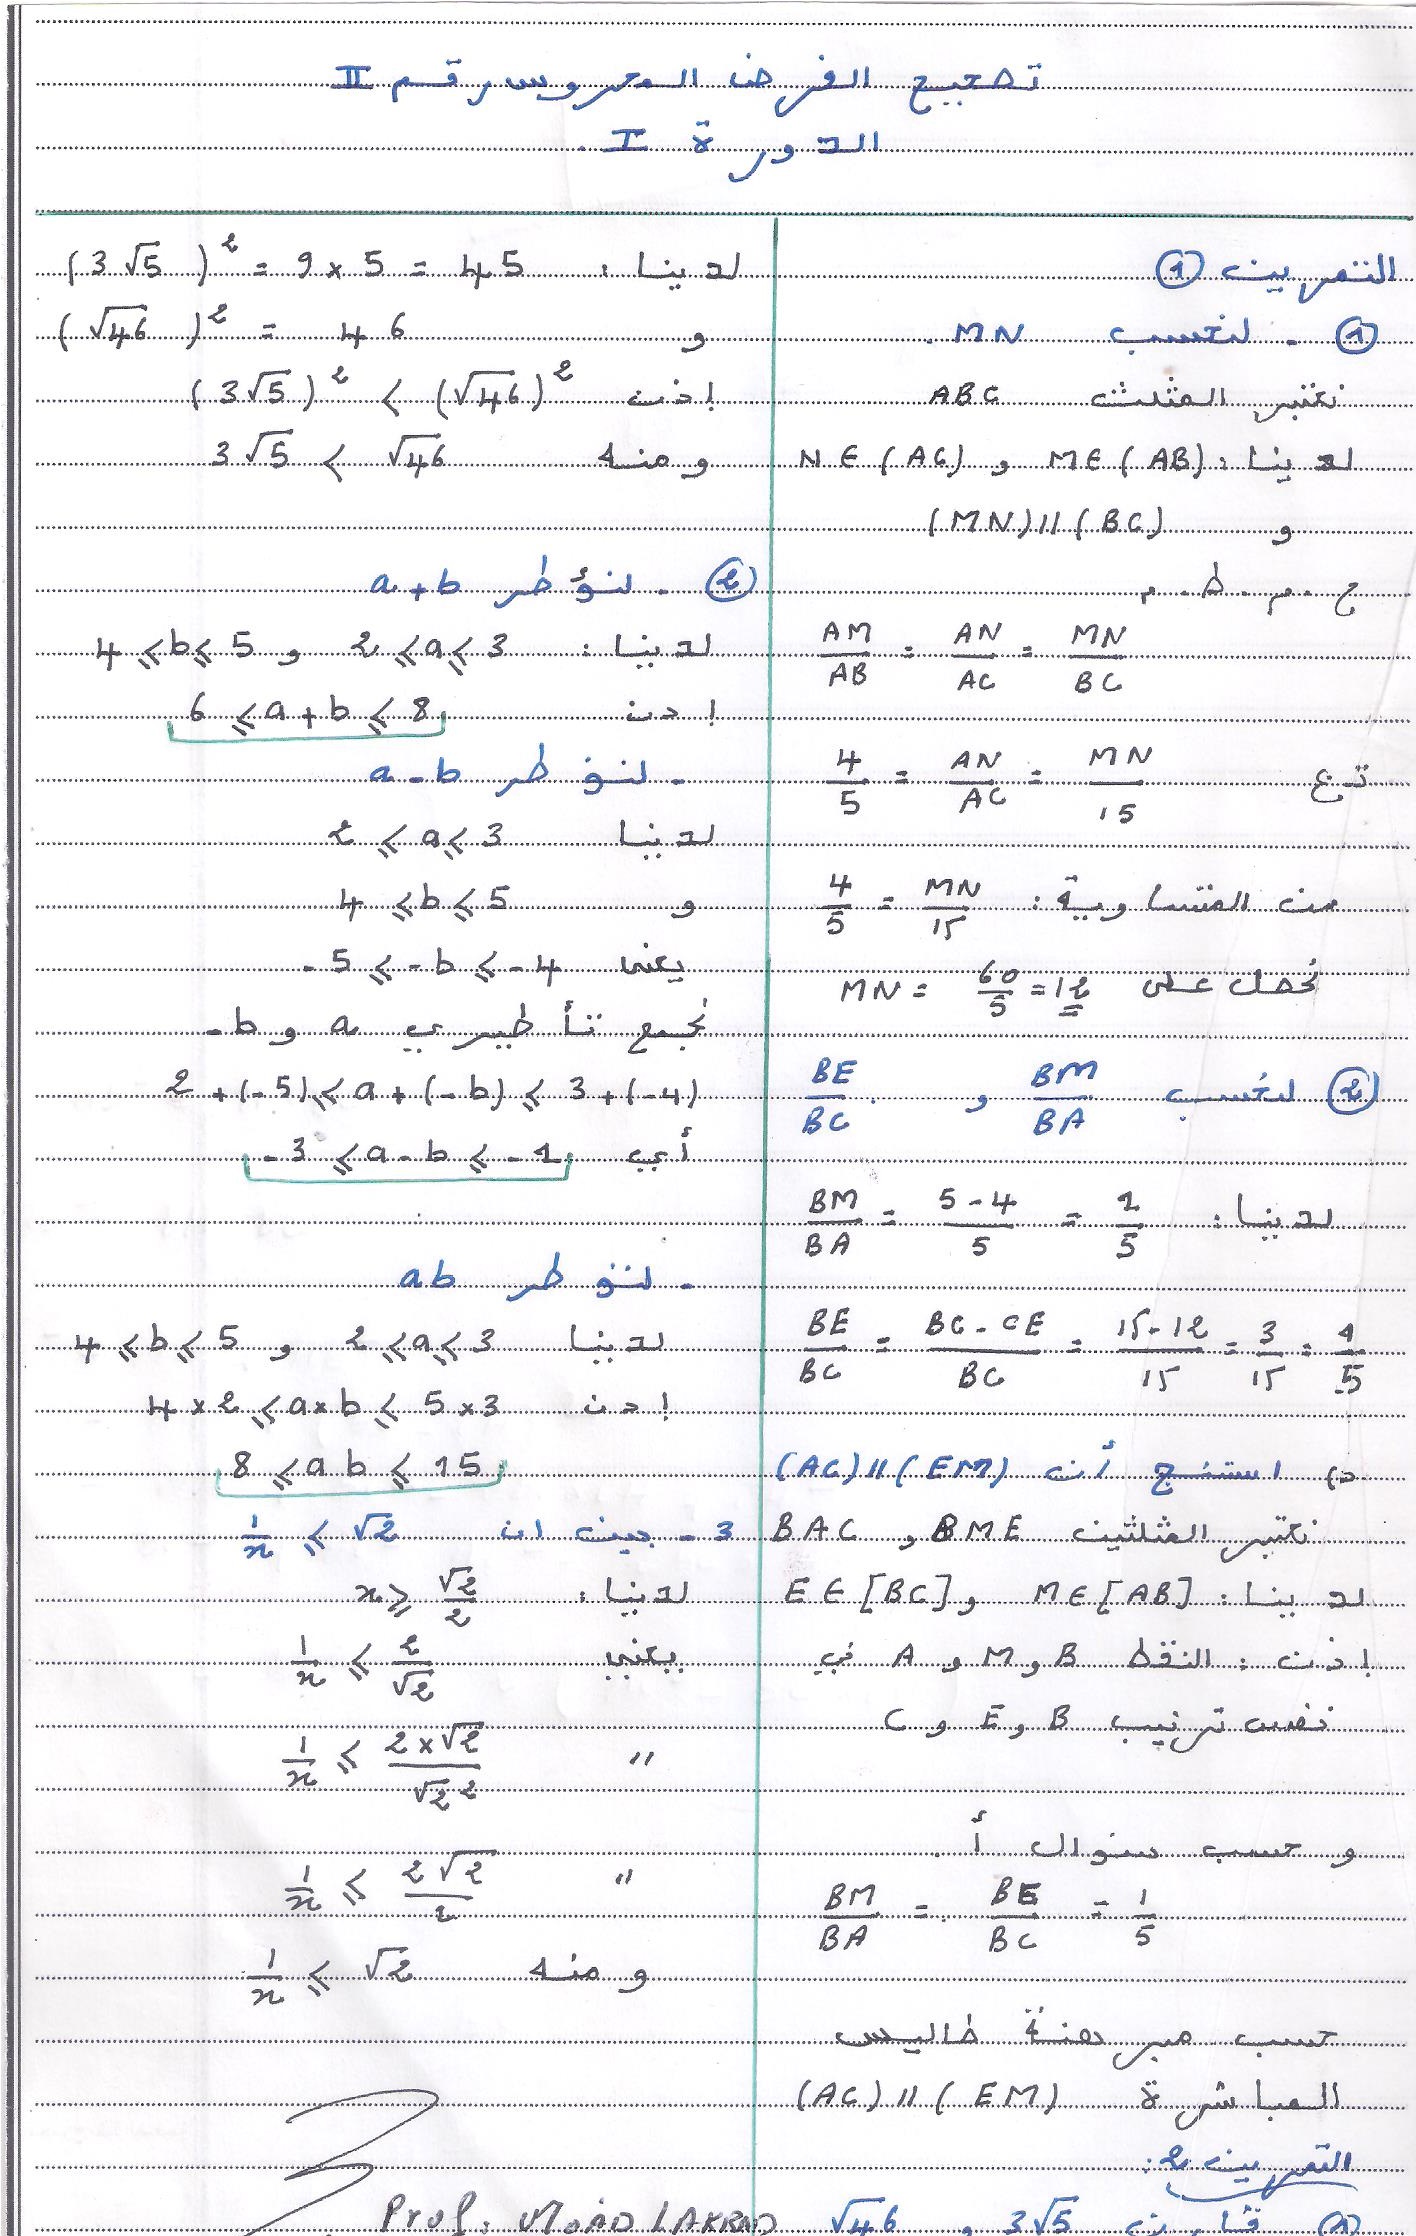 تصحيح الفرض المحروس رقم II
الدورة I.
التمرين ①
① - لنحسب MN.
نعتبر المثلث ABC
لدينا: M∈(AB) و N∈(AC)
و (MN)//(BC)
ح.م.ط.م
AM/AB = AN/AC = MN/BC
ت.ع 4/5 = AN/AC = MN/15
من المتساوية: 4/5 = MN/15
نحصل على MN = 60/5 = 12
② لنحسب BM/BA و BE/BC.
لدينا: BM/BA = 5-4/5 = 1/5
BE/BC = BC-CE/BC = 15-12/15 = 3/15 = 1/5
استنتج أن (AC)//(EM)
نعتبر المثلثين BME و BAC
لدينا: M∈[AB] و E∈[BC]
إذن: النقط B و M و A في
نفس ترتيب B و E و C
و حسب سؤال أ
BM/BA = BE/BC = 1/5
حسب مبرهنة طاليس
المباشرة (AC)//(EM)
التمرين 2:
① قارن 3√5 و √46
لدينا: (3√5)² = 9×5 = 45
و (√46)² = 46
إذن (3√5)² < (√46)²
ومنه 3√5 < √46
② - لنؤطر a+b
لدينا: 2≤a≤3 و 4≤b≤5
إذن 6≤a+b≤8
- لنؤطر a-b
لدينا 2≤a≤3
و 4≤b≤5
يعني -5≤-b≤-4
نجمع تأطيري a و -b
2+(-5)≤a+(-b)≤3+(-4)
أي -3≤a-b≤-1
- لنؤطر ab
لدينا 2≤a≤3 و 4≤b≤5
إدن 4×2≤a×b≤5×3
8≤ab≤15
3 - بين ان 1/x ≤ √2
لدينا: x ≥ √2/2
يعني 1/x ≤ 2/√2
" 1/x ≤ 2×√2/√2²
" 1/x ≤ 2√2/2
ومنه 1/x ≤ √2
Prof: MOAD LAKRAD